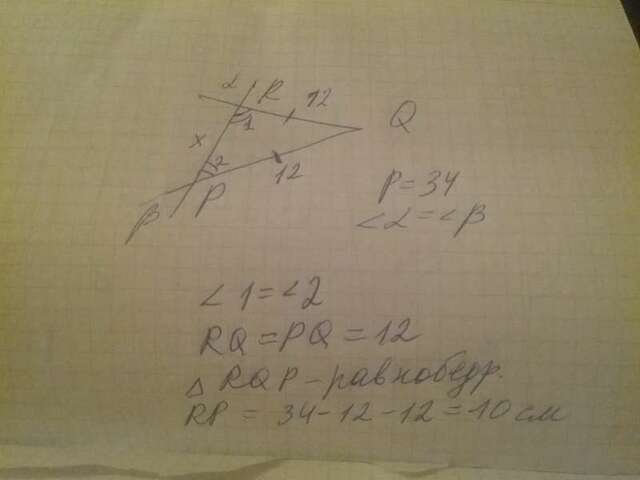 α R 12
1 Q
x
2
12
β P
P = 34
∠α = ∠β
∠1 = ∠2
RQ = PQ = 12
△ RQP - равнобедр.
RP = 34 - 12 - 12 = 10 см